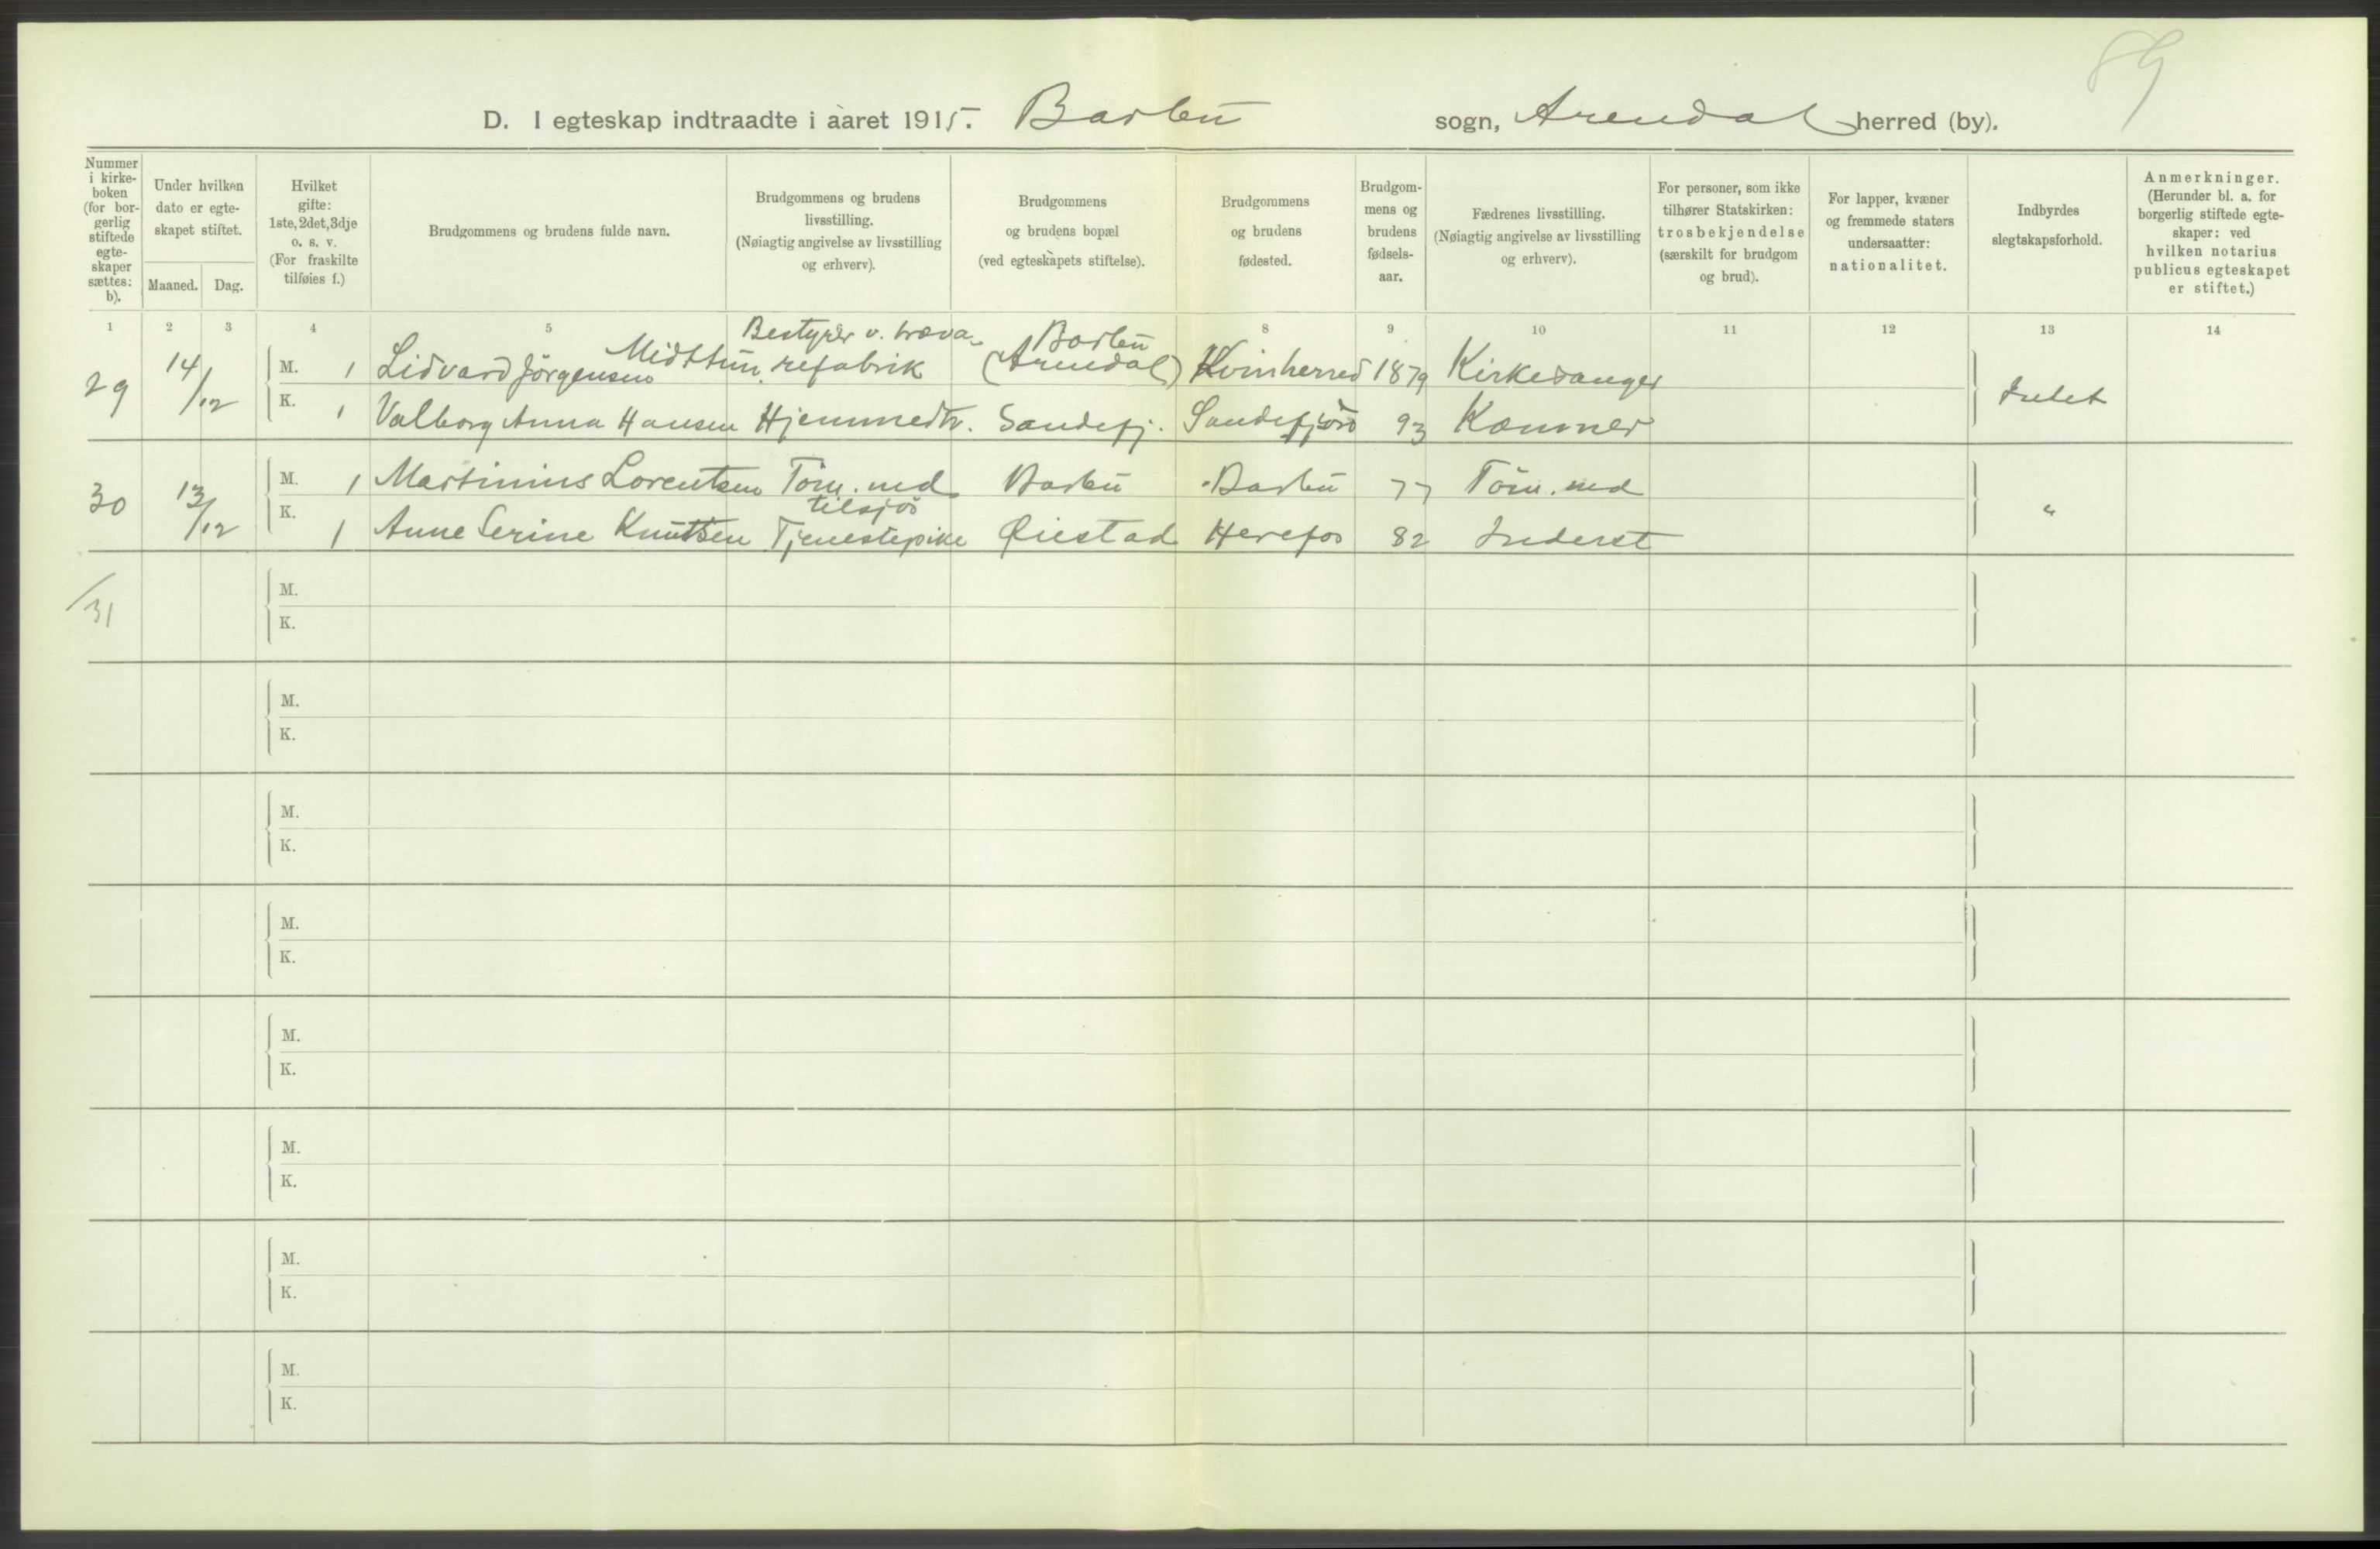 89
D. I egteskap indtraadte i aaret 1915. Barbu sogn, Arendal herred (by).
Nummer i kirke-boken (for bor-gerlig stiftede egte-skaper sættes: b).
Under hvilken dato er egte-skapet stiftet.
Maaned. Dag.
Hvilket gifte: 1ste, 2det, 3dje o. s. v. (For fraskilte tilføies f.)
Brudgommens og brudens fulde navn.
Brudgommens og brudens livsstilling. (Nøiagtig angivelse av livsstilling og erhverv).
Brudgommens og brudens bopæl (ved egteskapets stiftelse).
Brudgommens og brudens fødested.
Brudgom-mens og brudens fødsels-aar.
Fædrenes livsstilling. (Nøiagtig angivelse av livsstilling og erhverv).
For personer, som ikke tilhører Statskirken: trosbekjendelse (særskilt for brudgom og brud).
For lapper, kvæner og fremmede staters undersaatter: nationalitet.
Indbyrdes slegtskapsforhold.
Anmerkninger. (Herunder bl. a. for borgerlig stiftede egte-skaper: ved hvilken notarius publicus egteskapet er stiftet.)
1 2 3 4 5 8 9 10 11 12 13 14
Bestyrer v. træva- Barbu
29 14/12 M. 1 Lidvard Jörgensen Midttun refabrik (Arendal) Kvinherred 1879 Kirkesanger
K. 1 Valborg Anna Hansen Hjemmedtr. Sandefj. Sandefjord 93 Kæmner Intet
30 13/12 M. 1 Martinius Lorentsen Töm.md Barbu Barbu 77 Töm.md
tilsjös
K. 1 Anne Serine Knutsen Tjenestepike Øiestad Herefos 82 Inderst "
/31 M.
K.
M.
K.
M.
K.
M.
K.
M.
K.
M.
K.
M.
K.
M.
K.